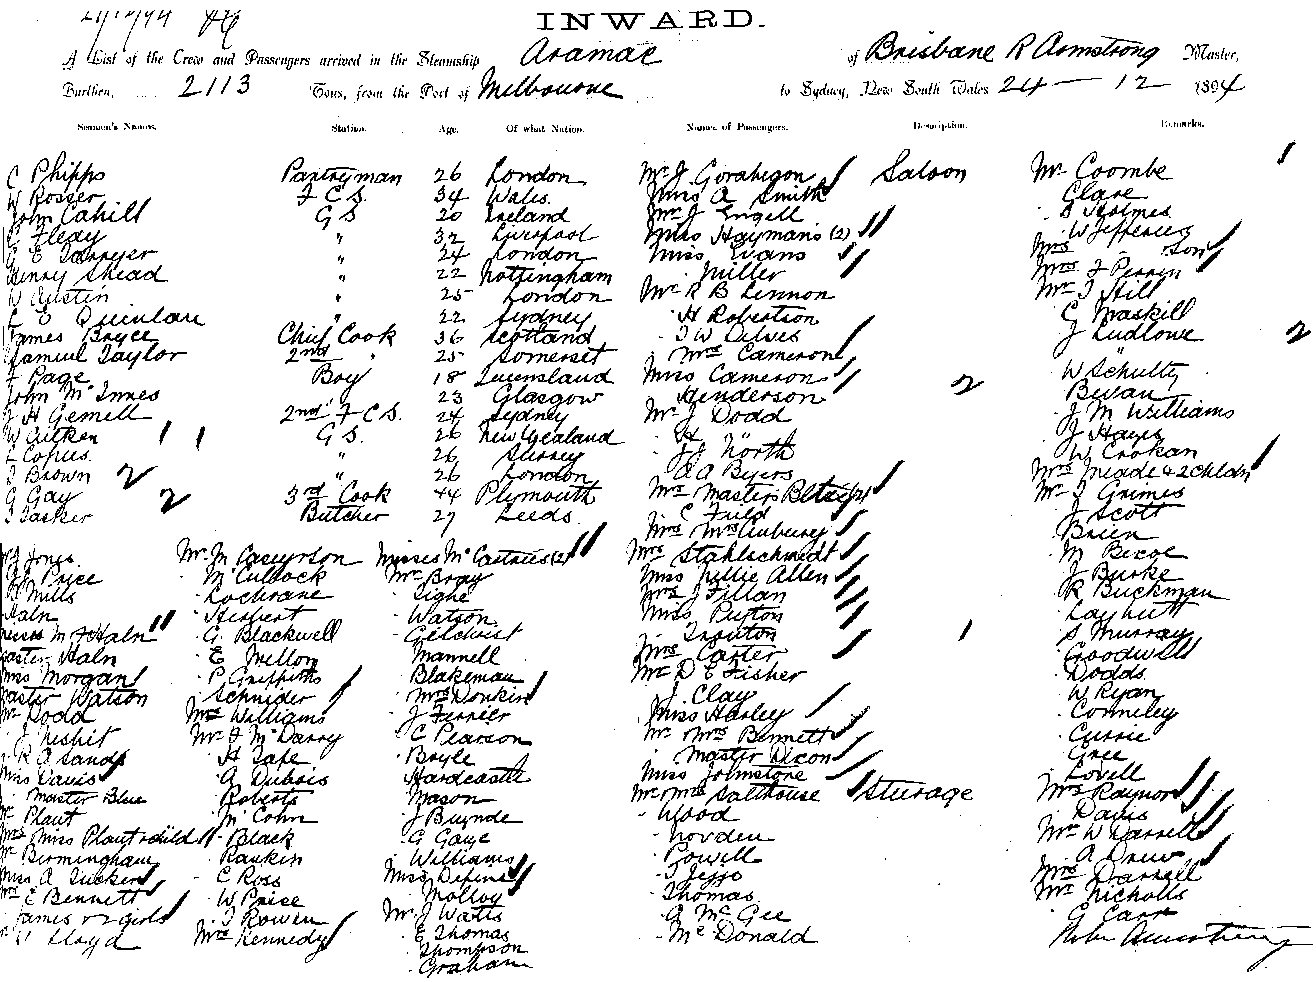 24/12/94
INWARD.
A List of the Crew and Passengers arrived in the Steamship Aramac of Brisbane R Armstrong Master,
Burthen, 2113 Tons, from the Port of Melbourne to Sydney, New South Wales 24 — 12 1894
Seamen's Names. Station. Age. Of what Nation. Names of Passengers. Description. Remarks.
C Phipps Pantryman 26 London
W Rosser F.C.S. 34 Wales.
John Cahill G S. 20 Ireland
Fleay " 32 Liverpool
E Sawyer " 24 London
Henry Shead " 22 Nottingham
W Austin " 25 London
E Quinlan " 22 Sydney
James Bryce Chief Cook 36 Scotland
Samuel Taylor 2nd " 25 Somerset
F Page Boy 18 Queensland
John McInnes 23 Glasgow
J H Gemell 2nd F.C.S. 24 Sydney
W Aitken G S. 26 New Zealand
Copus " 26 Surrey
T Brown 2 " 26 London
G Gay 2 3rd Cook 44 Plymouth
T Tasker Butcher 27 Leeds
Mr J Saloon
Miss A Smith
Mr J Engell
Miss Haymans (2)
Miss Evans
Miller
Mr R B Lennon
H Robertson
T W Alves
Mrs Cameron
Miss Cameron 2
Henderson
Mr J Dodd
H "
J J North
A A Byers
Mrs Masters
C Field
Mrs
Mrs Stahlschmidt
Miss Lillie Allen
Mrs J Fillan
Miss Purton
Trouton 1
Mrs Carter
Mr D E Fisher
J. Clay
Miss Harley
Mr Mrs Bennett
Master Dixon
Miss Johnstone
Mr Mrs Salthouse Sturage
Wood
Novden
Powell
T Jesso
Thomas
G McGee
McDonald
Jones
Price
Mills
Haln
Misses M & F Haln
Master Haln
Miss Morgan
Master Watson
Mr Dodd
J Nesbit
R A Sands
Miss Davis
Master Blue
Mr Plant
Mrs Miss Plant & child
Mr Birmingham
Miss A Tucker
Mrs E Bennett
James & 2 girls
Lloyd
Mr M Caseyrson
McCullock
Cochrane
Herbert
G. Blackwell
E Mellon
P Griffiths
Schnider
Mrs Williams
Mr F McDarry
H Tape
A Dubois
Roberts
McCohn
Black
Raskin
C Ross
W Price
T Rowen
Mrs Kennedy
Misses McCastries (2)
Mr Bray
Signe
Watson
Gilchrist
Mannell
Blakeman
Mrs Donkin
J Ferrier
C Pearson
Boyle
Hardcastle
Mason
J Buynde
G Gaye
Williams
Miss Depins
Molloy
Mr J Watts
E Thomas
Thompson
Graham
Mr Coombe 1
Clare
S Holmes
W Jefferies
Mrs " Son
Mrs F Perrin
Mr T Hill
C Maskill
J Ludlowe 2
W Schultz
Bevan
J M Williams
J Hayes
W Crokan
Mrs Meade & 2 Chldn
Mr J Grimes
J Scott
Brien
M Biscoe
J Burke
R Buckman
Layhutt
S Murray
Goodwill
Dodds
W Ryan
Conneley
Currie
Gree
Lovell
Mrs Raynor
Davis
Mr W Darrell
A Drew
Mrs Darrell
Mr Nicholls
G Carr
Robt Armstrong